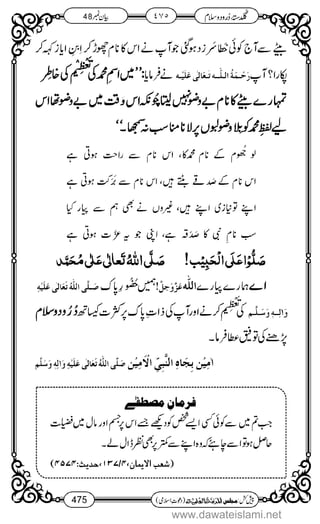 بیان نمبر 48
٤٧٥
گلدستۂ دُرود و سلام
بیٹے سے آج کوئی خطا سَرزد ہوگئی جو آپ نے اس کا نام چھوڑ کر اِبنِ ایاز کہہ کر
پکارا؟ آپ رَحْمَۃُ اللہِ تَعَالٰی عَلَیْہ نے فرمایا: ’’میں اسمِ محمد کی تَعْظِیْم کی خاطر
تمہارے بیٹے کا نام بے وضو نہیں لیتا چُونکہ اس وقت میں بے وضو تھا اس
لیے لفظِ محمد کو بلا وضو لبوں پر لانا مناسب نہ سمجھا۔‘‘
لو جُھوم کے نام محمد کا، اس نام سے راحت ہوتی ہے
اس نام کے صدقے بٹتے ہیں، اس نام سے بَرَکت ہوتی ہے
اپنے تو نیازی اپنے ہیں، غیروں نے بھی ہم سے پیار کیا
سب نام نبی کا صَدْقہ ہے، اپنی جو یہ عزَّت ہوتی ہے
صَلُّوْا عَلَی الْحَبِیْب! صَلَّی اللہُ تَعَالٰی عَلٰی مُحَمَّد
اے ہمارے پیارے اللہ عَزَّوَجَلَّ! ہمیں حُضُور پاک صَلَّی اللہُ تَعَالٰی عَلَیْہِ
وَاٰلِہٖ وَسَلَّم کی تَعْظِیْم کرنے اور آپ کی ذاتِ پاک پر کثرت کیساتھ دُرُود و سلام
پڑھنے کی توفیق عطا فرما۔
اٰمِیْن بِجَاہِ النَّبِیِّ الْاَمِیْن صَلَّی اللہُ تَعَالٰی عَلَیْہِ وَاٰلِہٖ وَسَلَّم
فرمانِ مصطفٰے
جب تم میں سے کوئی ایسے شخص کو دیکھے جسے اس پر جسم اور مال میں فضیلت
حاصل ہو تو اسے چاہئے کہ وہ اپنے سے کمتر پر بھی نظر ڈال لے۔
(شعب الایمان، ٤/١٣٧، حدیث: ٤٥٧٤)
475
www.dawateislami.net